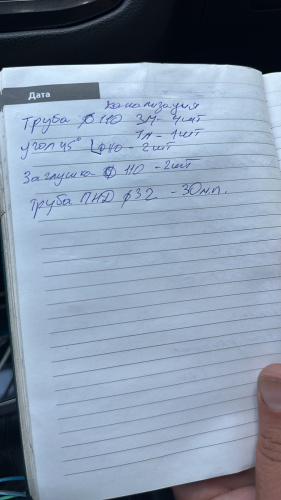 Дата
канализация
Труба ø 110 3м - 4шт
1м - 1шт
угол 45° ø110 - 2шт
Заглушка ø 110 - 2шт
Труба ПНД ø32 - 30м.п.